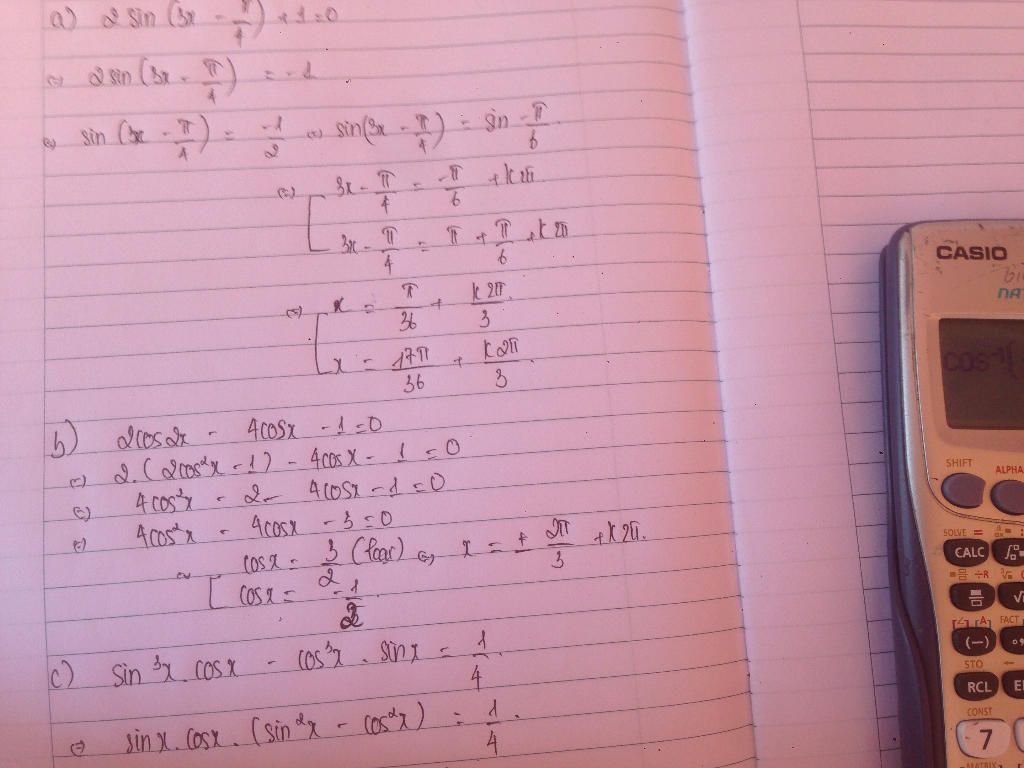 a) 2 sin (3x - π/4) + 1 = 0
⇔ 2 sin (3x - π/4) = -1
⇔ sin (3x - π/4) = -1/2 ⇔ sin(3x - π/4) = sin -π/6.
⇔ [ 3x - π/4 = -π/6 + k2π.
3x - π/4 = π + π/6 + k2π
⇔ [ x = π/36 + k2π/3.
x = 17π/36 + k2π/3.
b) 2cos2x - 4cosx - 1 = 0
⇔ 2.(2cos²x - 1) - 4cosx - 1 = 0
⇔ 4cos²x - 2 - 4cosx - 1 = 0
⇔ 4cos²x - 4cosx - 3 = 0
⇔ [ cosx = 3/2 (loại) ⇔ x = ± 2π/3 + k2π.
cosx = -1/2.
c) sin³x.cosx - cos³x.sinx = 1/4.
⇔ sinx.cosx.(sin²x - cos²x) = 1/4.
CASIO
COS⁻¹(
SHIFT
ALPHA
SOLVE =
CALC
÷R
(-)
FACT
STO
RCL
CONST
7
MATRIX